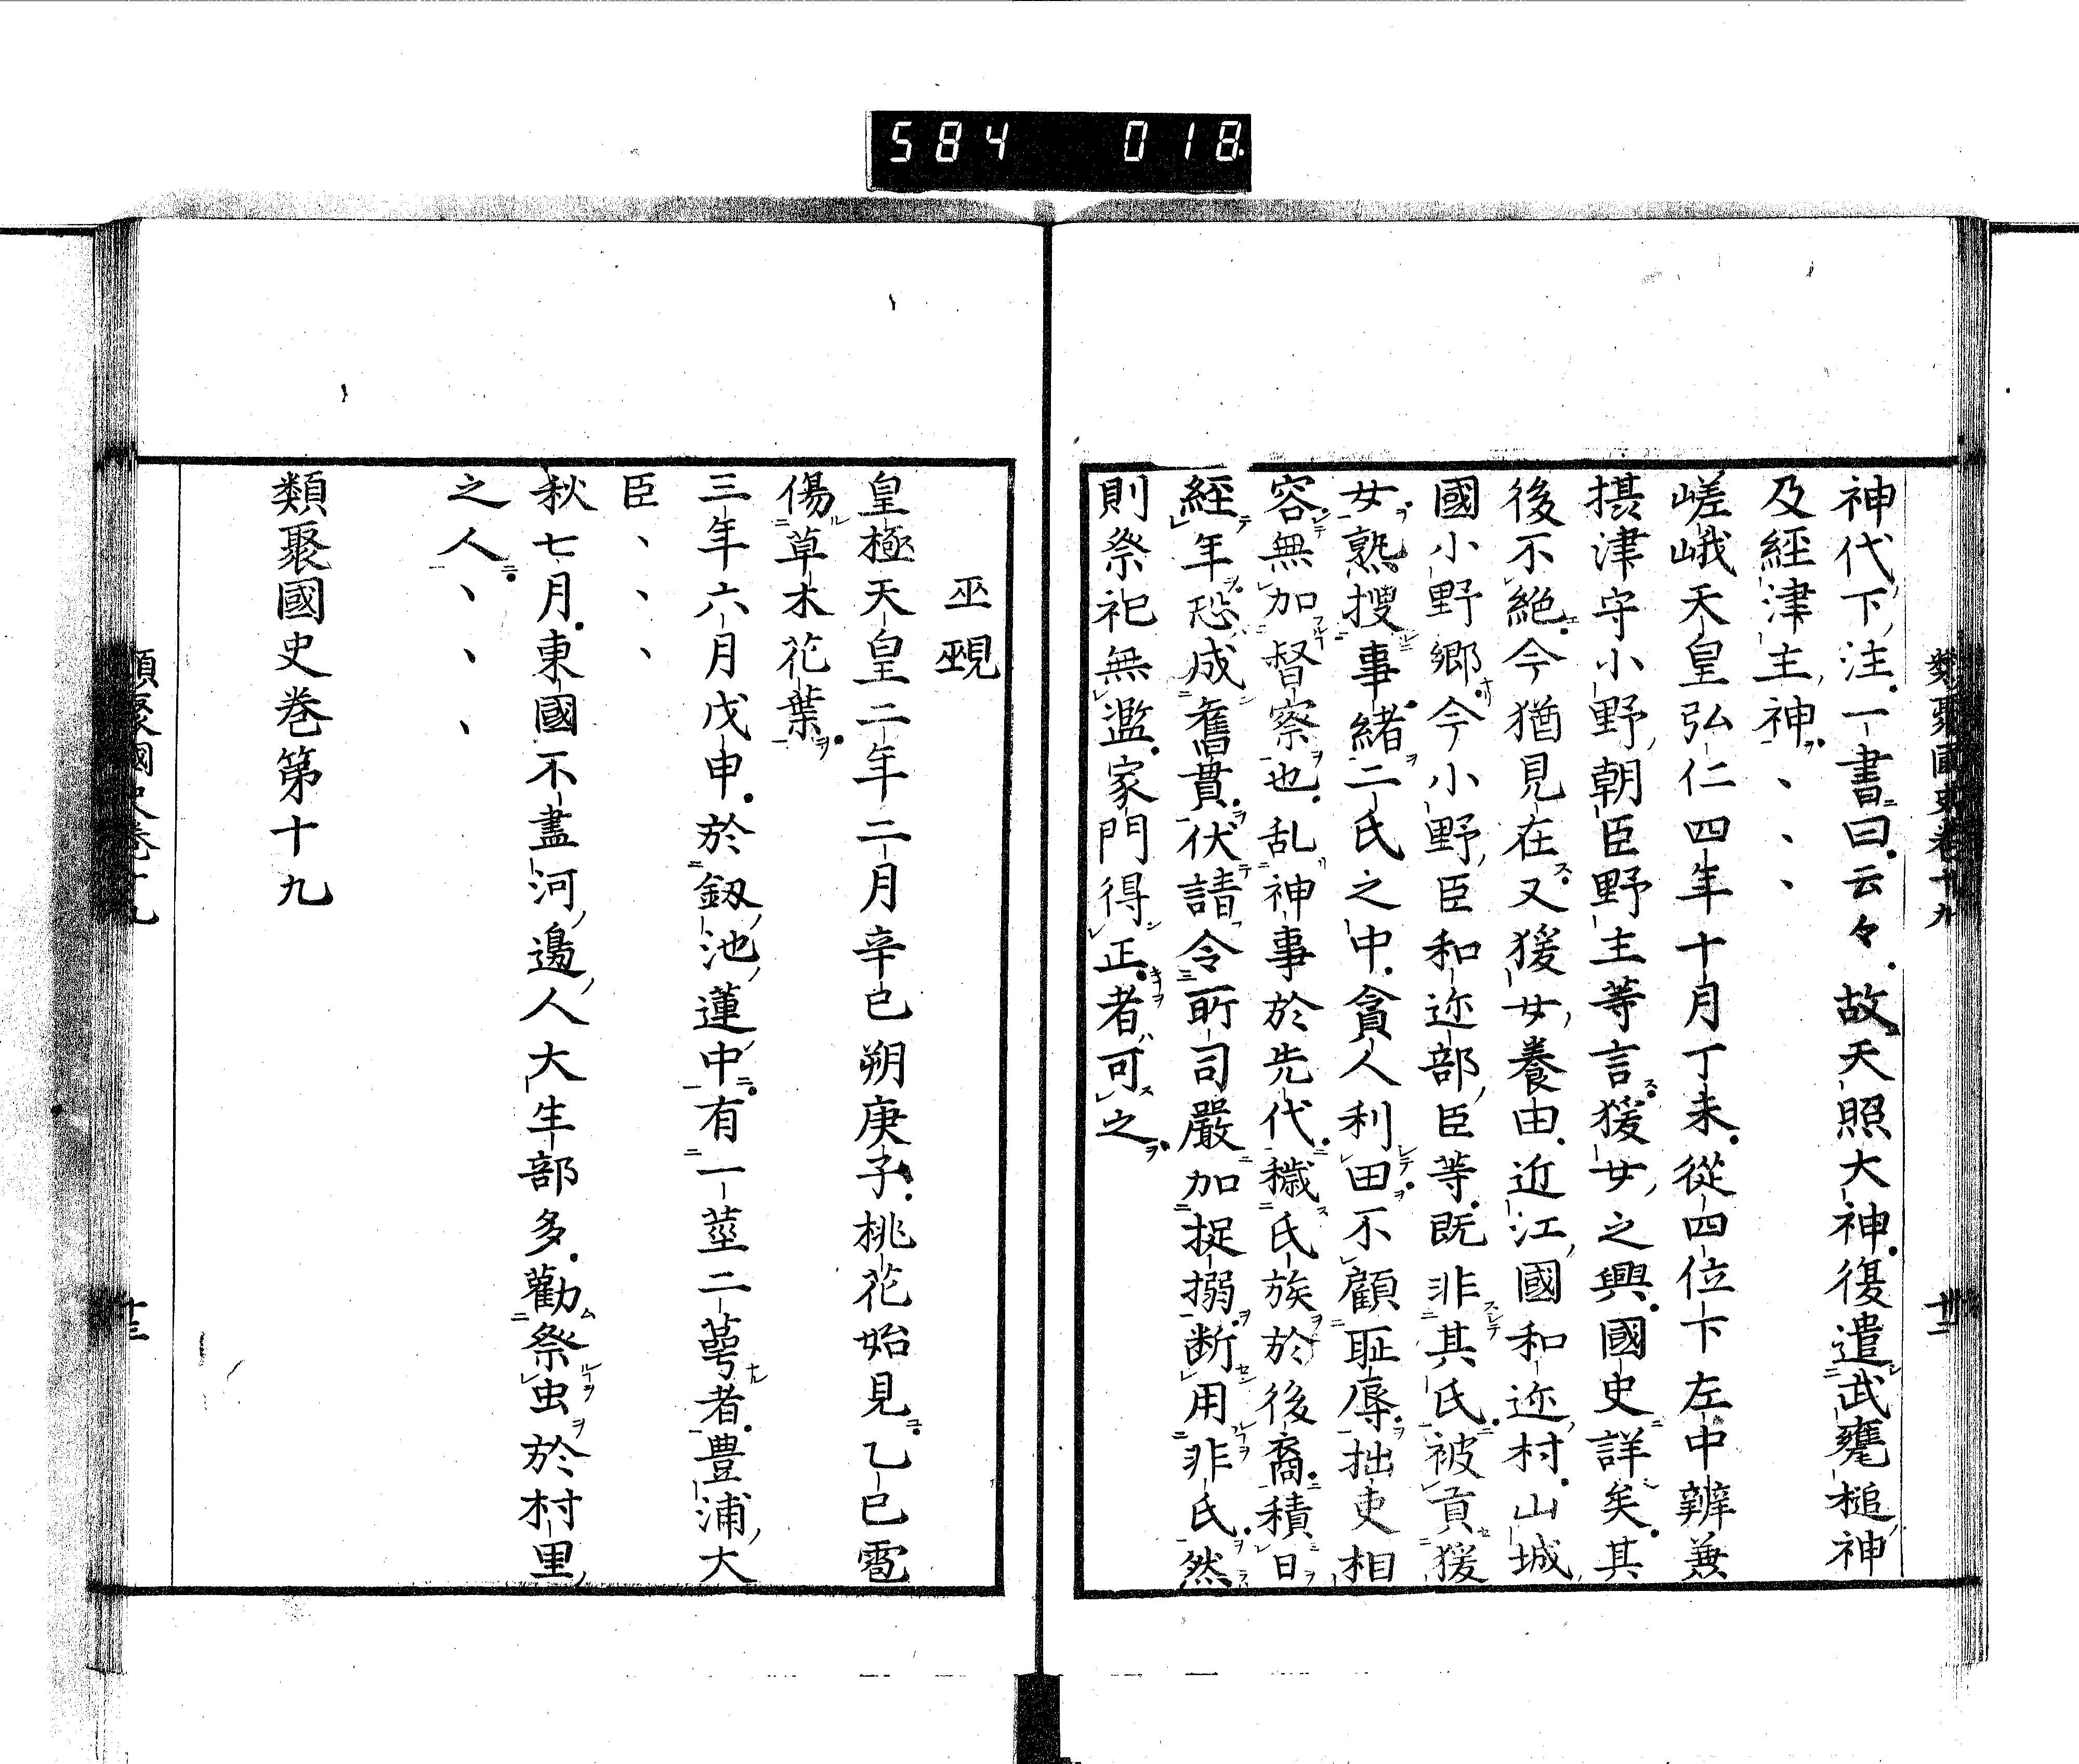 584 018
類聚國史卷十九
十二
神代下注一書曰云々故天照大神復遣武甕槌神
及經津主神、、、
嵯峨天皇弘仁四年十月丁未從四位下左中辨兼
摂津守小野朝臣野主等言猨女之興國史詳矣其
後不絶今猶見在又猨女養由近江國和迩村山城
國小野郷今小野臣和迩部臣等既非其氏被貢猨
女熟搜事緒二氏之中貪人利田不顧耻辱拙吏相
容無加督察也乱神事於先代穢氏族於後裔積日
經年恐成舊貫伏請令所司嚴加捉搦断用非氏然
則祭祀無濫家門得正者可之
巫覡
皇極天皇二年二月辛巳朔庚子桃花始見乙巳雹
傷草木花葉
三年六月戊申於釼池蓮中有一莖二萼者豊浦大
臣、、、
秋七月東國不盡河邊人大生部多勸祭虫於村里
之人、、、
類聚國史巻第十九
類聚國史卷十九
十三